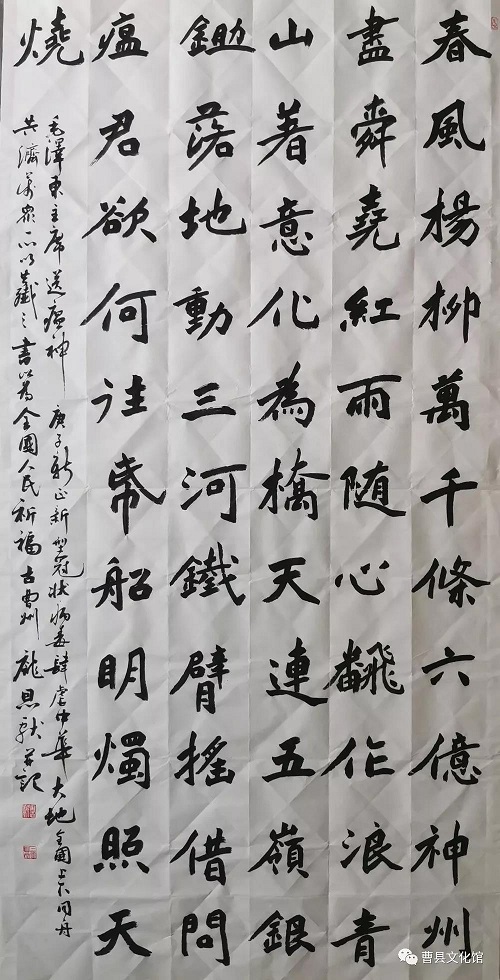 春風楊柳萬千條六億神州
盡舜堯紅雨随心飜作浪青
山著意化為橋天連五嶺銀
鋤落地動三河鐵臂搖借問
瘟君欲何往帋船明燭照天
燒
毛澤東主席送瘟神 庚子新正新型冠状病毒肆虐中華大地全國上下同舟
共濟萬眾一心以殲之書以為全國人民祈福 古曹州 龐思献并記
曹县文化馆